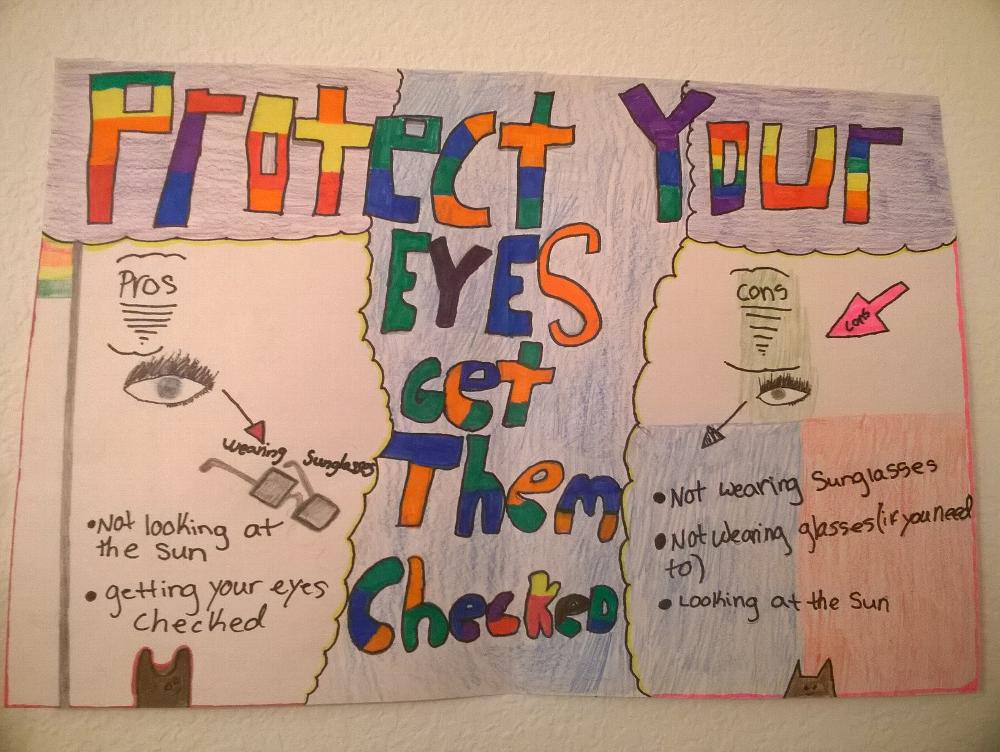 Protect Your
EYES
Get
Them
Checked
Pros
wearing Sunglasses
•Not looking at
the Sun
• getting your eyes
checked
cons
cons
•Not wearing Sunglasses
•Not wearing glasses(if you need
to)
• Looking at the Sun